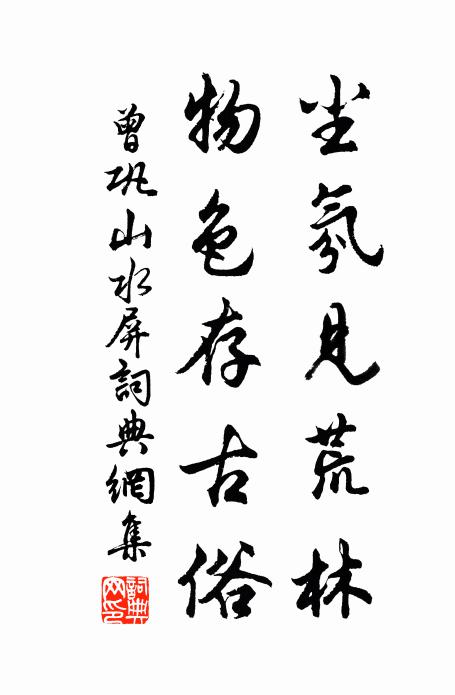 尘氛見荒林
物色存古俗
曾巩山水屏詞典網集
詞典网印